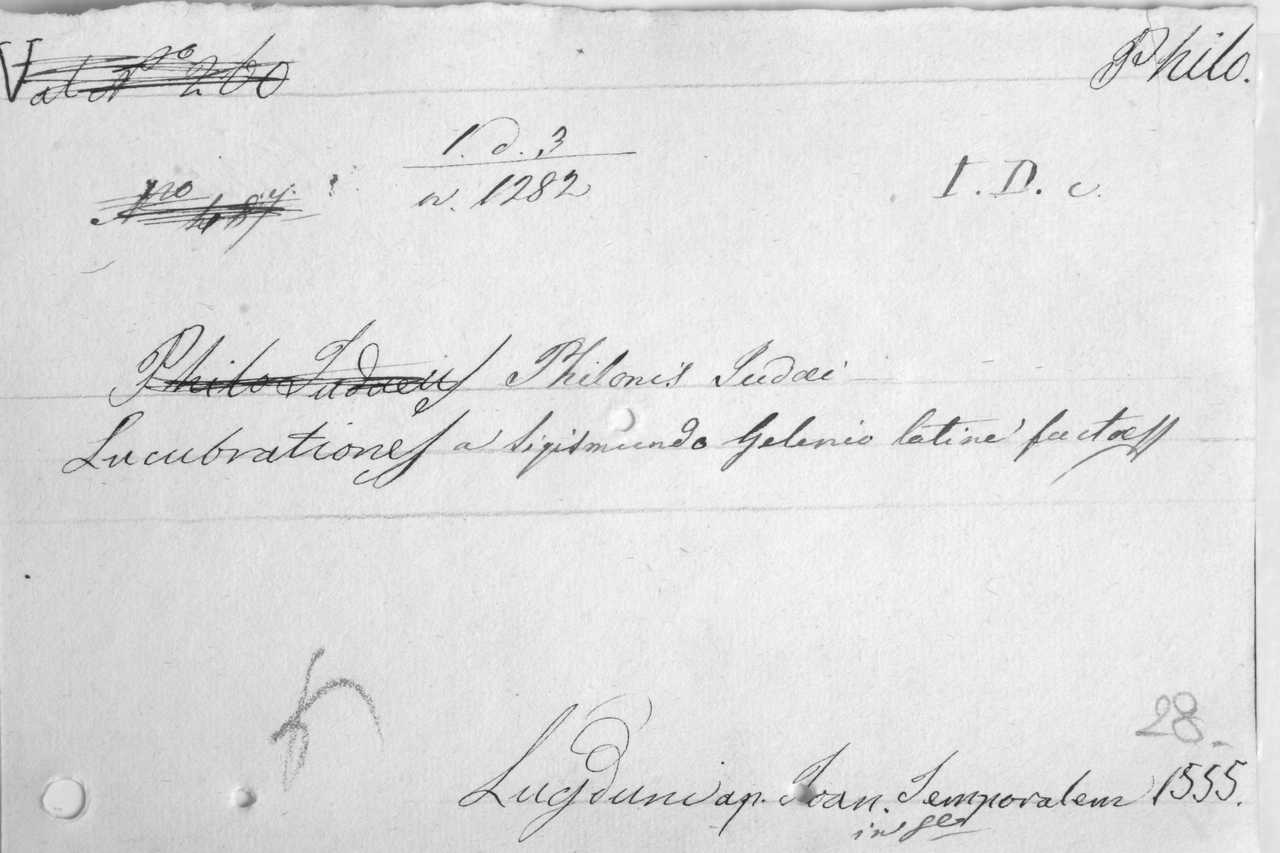 Vat Nº 260
Philo.
1. d. 3
n. 1282
Nro 487.
I. D. c.
Philo Judaeus Philonis Judaei
Lucubrationes a Sigismundo Gelenio latine factae
28.
Lugduni ap. Joan. Temporalem 1555.